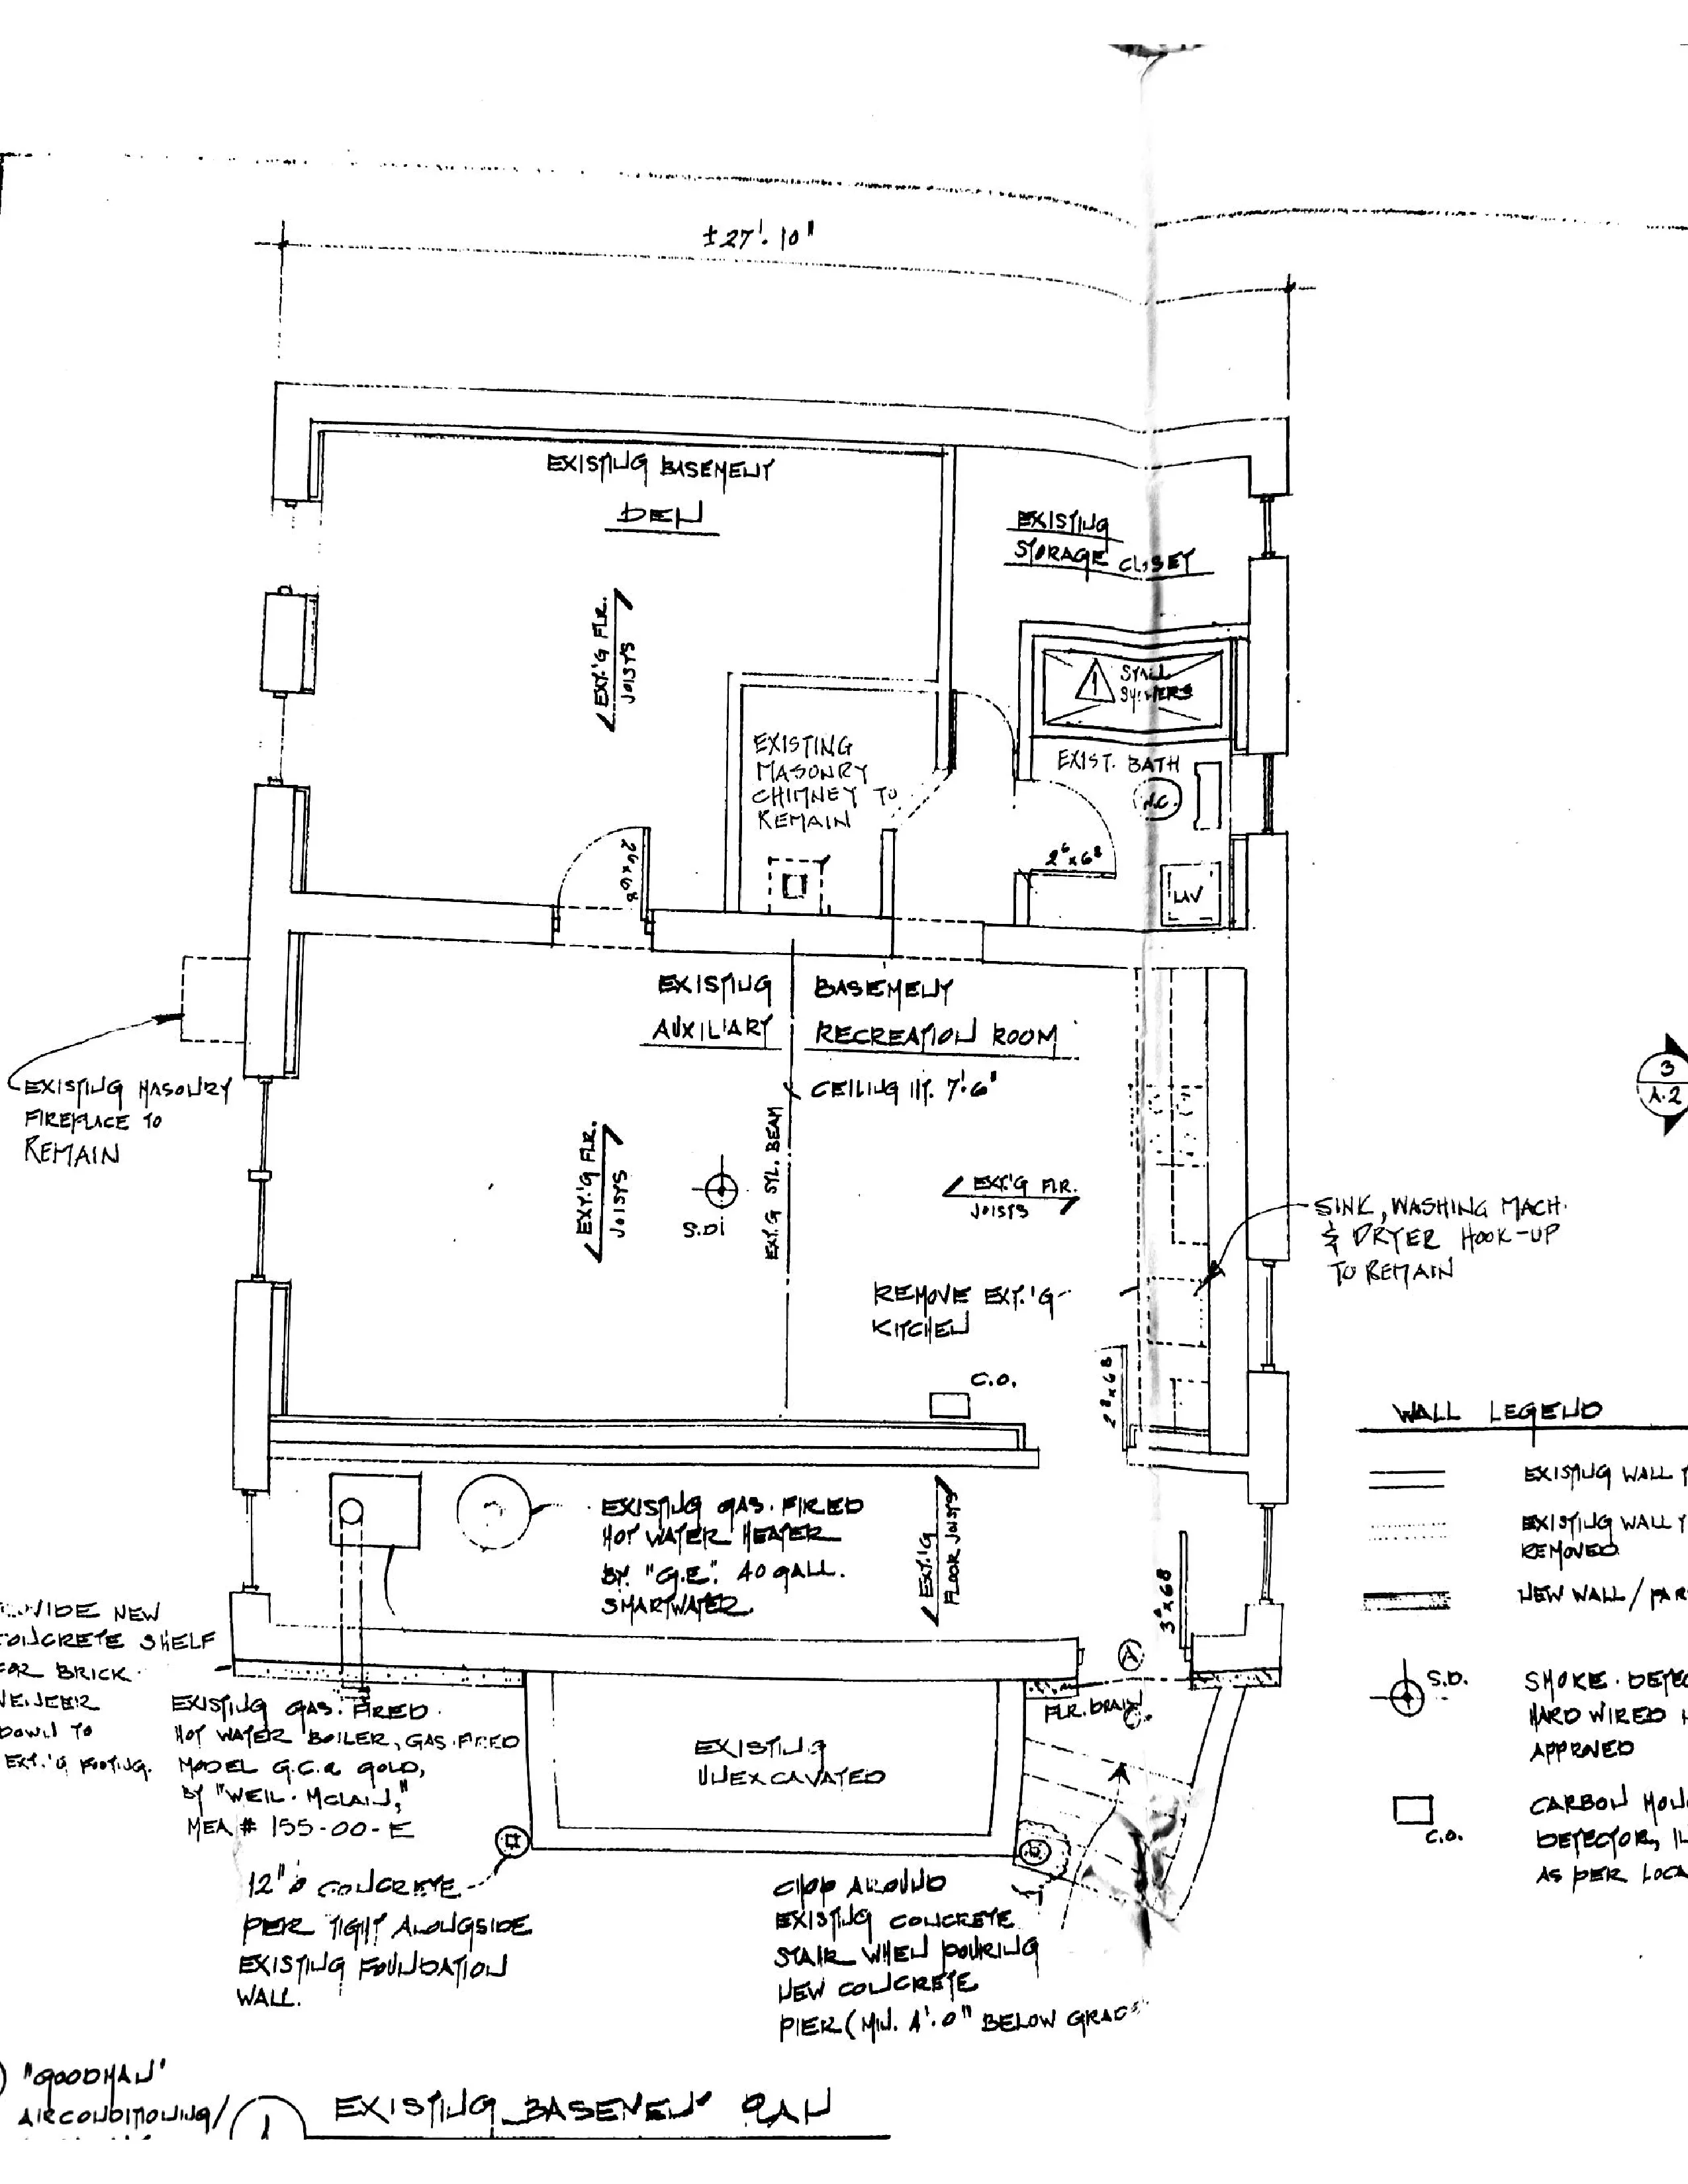 ±27'.10"
EXISTING BASEMENT
DEN
EXISTING
STORAGE CLOSET
EXT.'G FLR.
JOISTS
STALL
1
EXISTING
MASONRY
CHIMNEY TO
REMAIN
EXIST. BATH
W.C.
2⁶x6⁸
2⁶x6⁸
LAV
EXISTING BASEMENT
AUXILIARY RECREATION ROOM
CEILING HT. 7'.6"
EXISTING MASONRY
FIREPLACE TO
REMAIN
3
A.2
EXT.'G FLR.
JOISTS
S.D.
EXT.'G STL. BEAM
EXT.'G FLR.
JOISTS
SINK, WASHING MACH.
& DRYER HOOK-UP
TO REMAIN
REMOVE EXT.'G
KITCHEN
2⁸x6⁸
C.O.
WALL LEGEND
EXISTING WALL T
EXISTING WALL T
REMOVED
NEW WALL / PAR
EXISTING GAS.FIRED
HOT WATER HEATER
BY. "G.E". 40 GALL.
SMARTWATER.
EXT.'G
FLOOR JOISTS
3⁰x6⁸
A
S.D.
SMOKE. DETEC
HARD WIRED
APPROVED
NEW
CONCRETE SHELF
FOR BRICK
VENEER
DOWN TO
EXT.'G FOOTING.
EXISTING GAS.FIRED
HOT WATER BOILER, GAS.FIRED
MODEL G.C.a GOLD,
BY "WEIL.McLAIN,"
MEA # 155-00-E
EXISTING
UNEXCAVATED
FLR. DRAIN
C.O.
CARBON MON
DETECTOR,
AS PER LOCA
12"ø CONCRETE
PIER TIGHT ALONGSIDE
EXISTING FOUNDATION
WALL.
CHOP AROUND
EXISTING CONCRETE
STAIR WHEN POURING
NEW CONCRETE
PIER (MIN. 4'.0" BELOW GRADE
"GOODMAN"
AIRCONDITIONING/
1
EXISTING BASEMENT PLAN